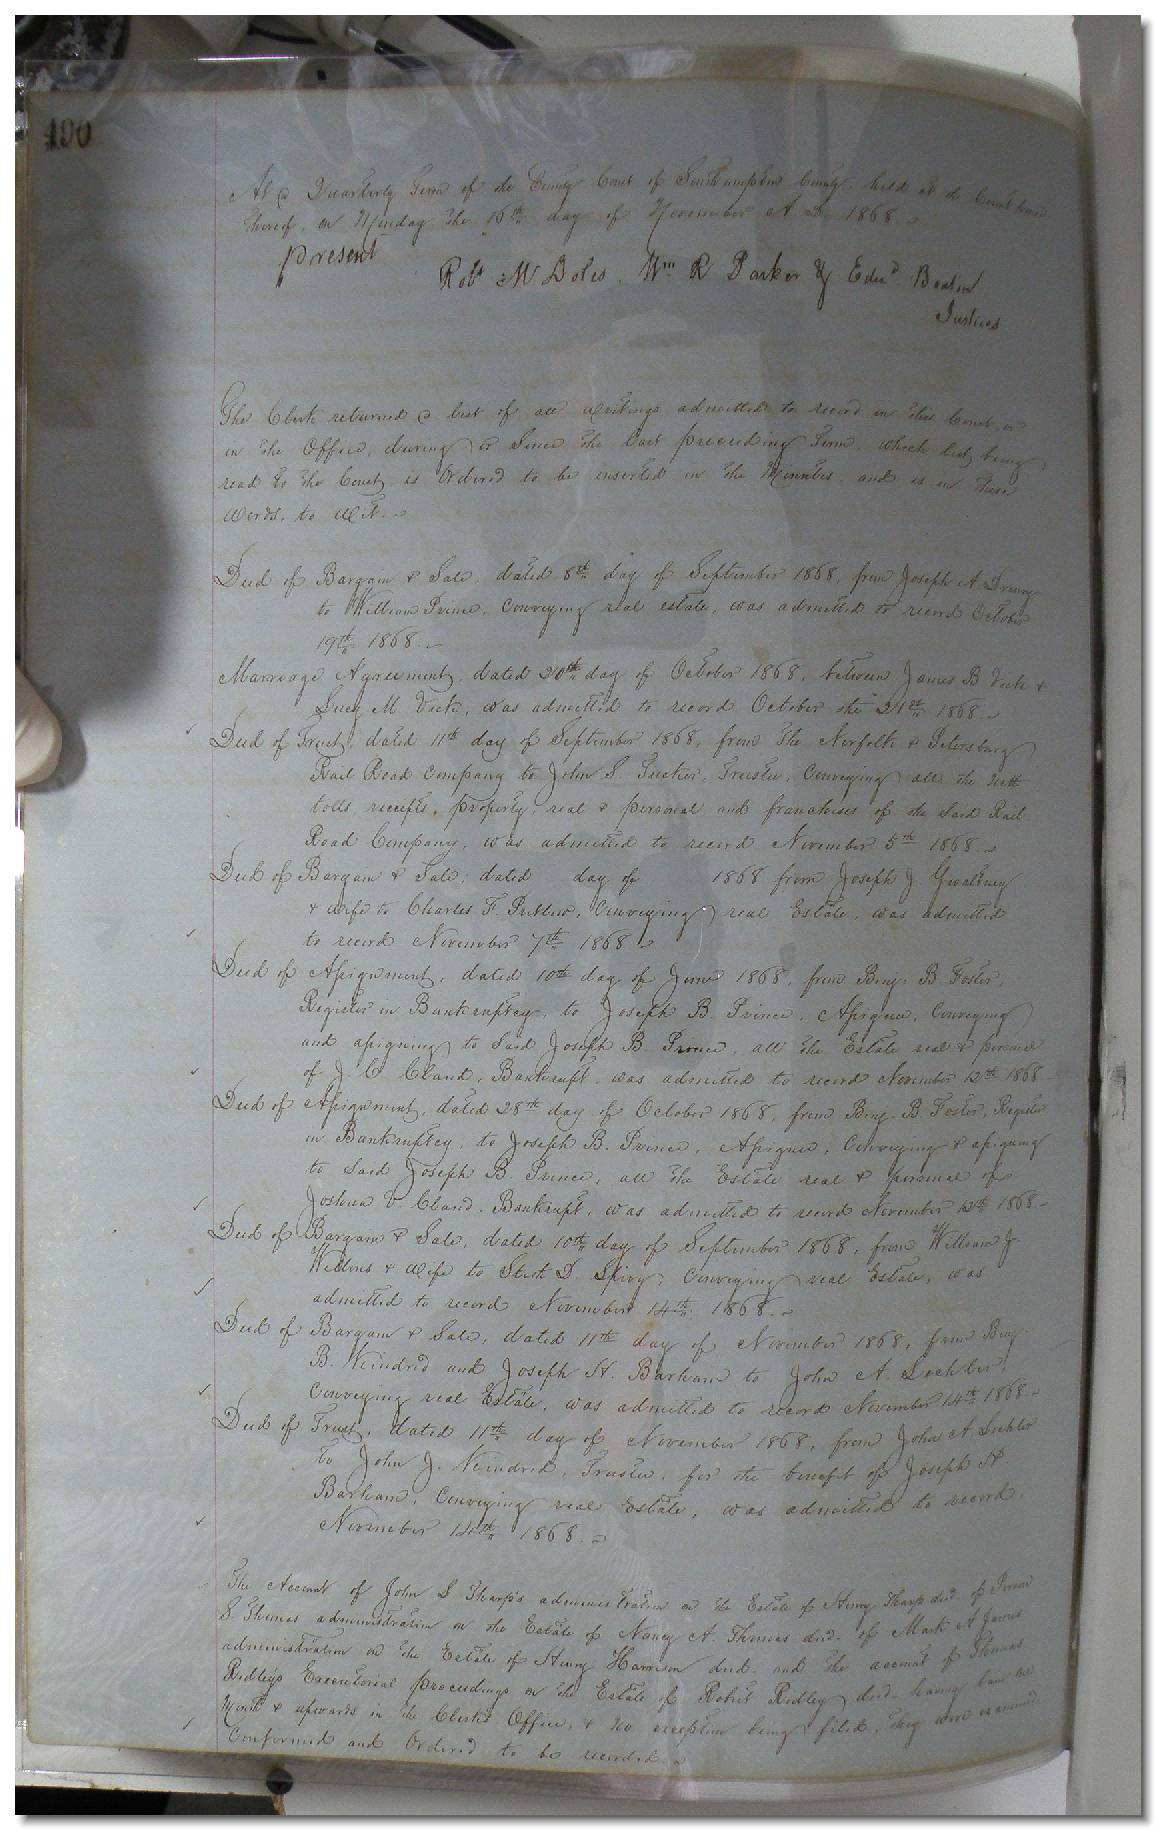 490
At a Quarterly Term of the County Court of Southampton County, held at the Court house
thereof, on Monday the 16th day of November A. D. 1868.
present
Robt M. Boles, Wm R Parker & Edwd Beaton
Justices
The Clerk returned a list of all writings admitted to record in this Court, or
in the Office, during or Since the last preceeding Term, which list being
read to the Court, is Ordered to be inserted in the Minutes, and is in these
words, to wit.
Deed of Bargain & Sale, dated 8th day of September 1868, from Joseph A Drewry
to William Prince, Conveying real estate, was admitted to record October
19th 1868.
Marriage Agreement, dated 20th day of October 1868, between James B Vick &
Lucy M. Vick, was admitted to record October the 21st 1868.
Deed of Trust, dated 11th day of September 1868, from The Norfolk & Petersburg
Rail Road Company to John S. Tucker, Trustee, Conveying all the nett
tolls, receipts, property, real & personal and franchises of the said Rail
Road Company, was admitted to record November 5th 1868.
Deed of Bargain & Sale, dated day of 1868 from Joseph J. Gwaltney
& wife to Charles F. Conveying real Estate, was admitted
to record November 7th 1868
Deed of Assignment, dated 10th day of June 1868, from Benj. B. Foster,
Register in Bankruptcy, to Joseph B. Prince, Assignee, Conveying
and assigning to Said Joseph B. Prince, all the Estate real & personal
of J. C. Claud, Bankrupt, was admitted to record November 12th 1868
Deed of Assignment, dated 28th day of October 1868, from Benj. B. Foster, Register
in Bankruptcy, to Joseph B. Prince, Assignee, Conveying & assigning
to Said Joseph B. Prince, all the Estate real & personal of
Joshua Claud, Bankrupt, was admitted to record November 12th 1868.
Deed of Bargain & Sale, dated 10th day of September 1868, from William J.
& wife to Sterth D. Spivy, Conveying real Estate, was
admitted to record November 14th 1868.
Deed of Bargain & Sale, dated 11th day of November 1868, from Benj.
B. Kindred and Joseph H. Barham to John A. Lechler,
Conveying real Estate, was admitted to record November 14th 1868.
Deed of Trust, dated 11th day of November 1868, from John A Lechler
to John J. Kindred, Trustee, for the benefit of Joseph H.
Barham, Conveying real Estate, was admitted to record
November 14th 1868.
The Account of John S Tharp's administration on the Estate of Henry Tharp decd. of
S. Thomas administration on the Estate of Nancy A. Thomas decd. of Mark A James
administration on the Estate of Henry Harrison decd. and the account of Thomas
Ridley's Executorial proceedings on the Estate of Robert Ridley decd. having been a
Month & upwards in the Clerks Office, & no exception being filed, they were examined
Confirmed and Ordered to be recorded.